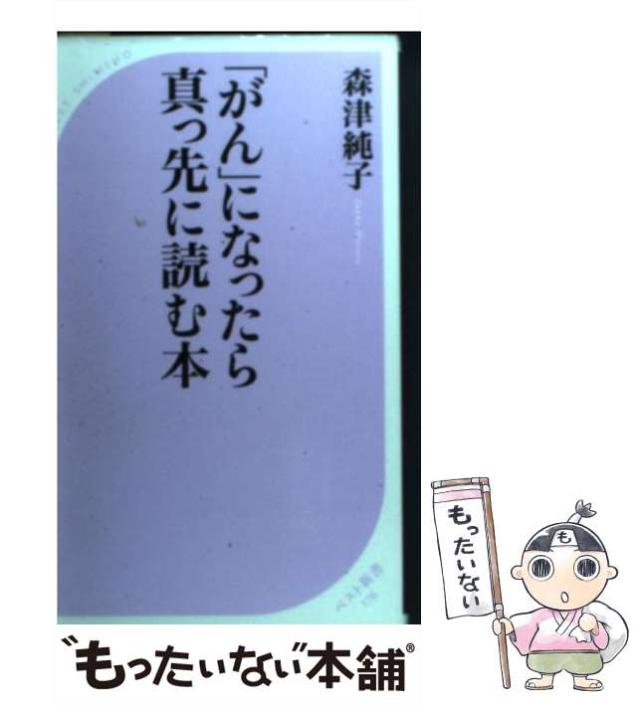 「がん」になったら
真っ先に読む本
森津純子
もったいない
も
“もったいない”本舗®